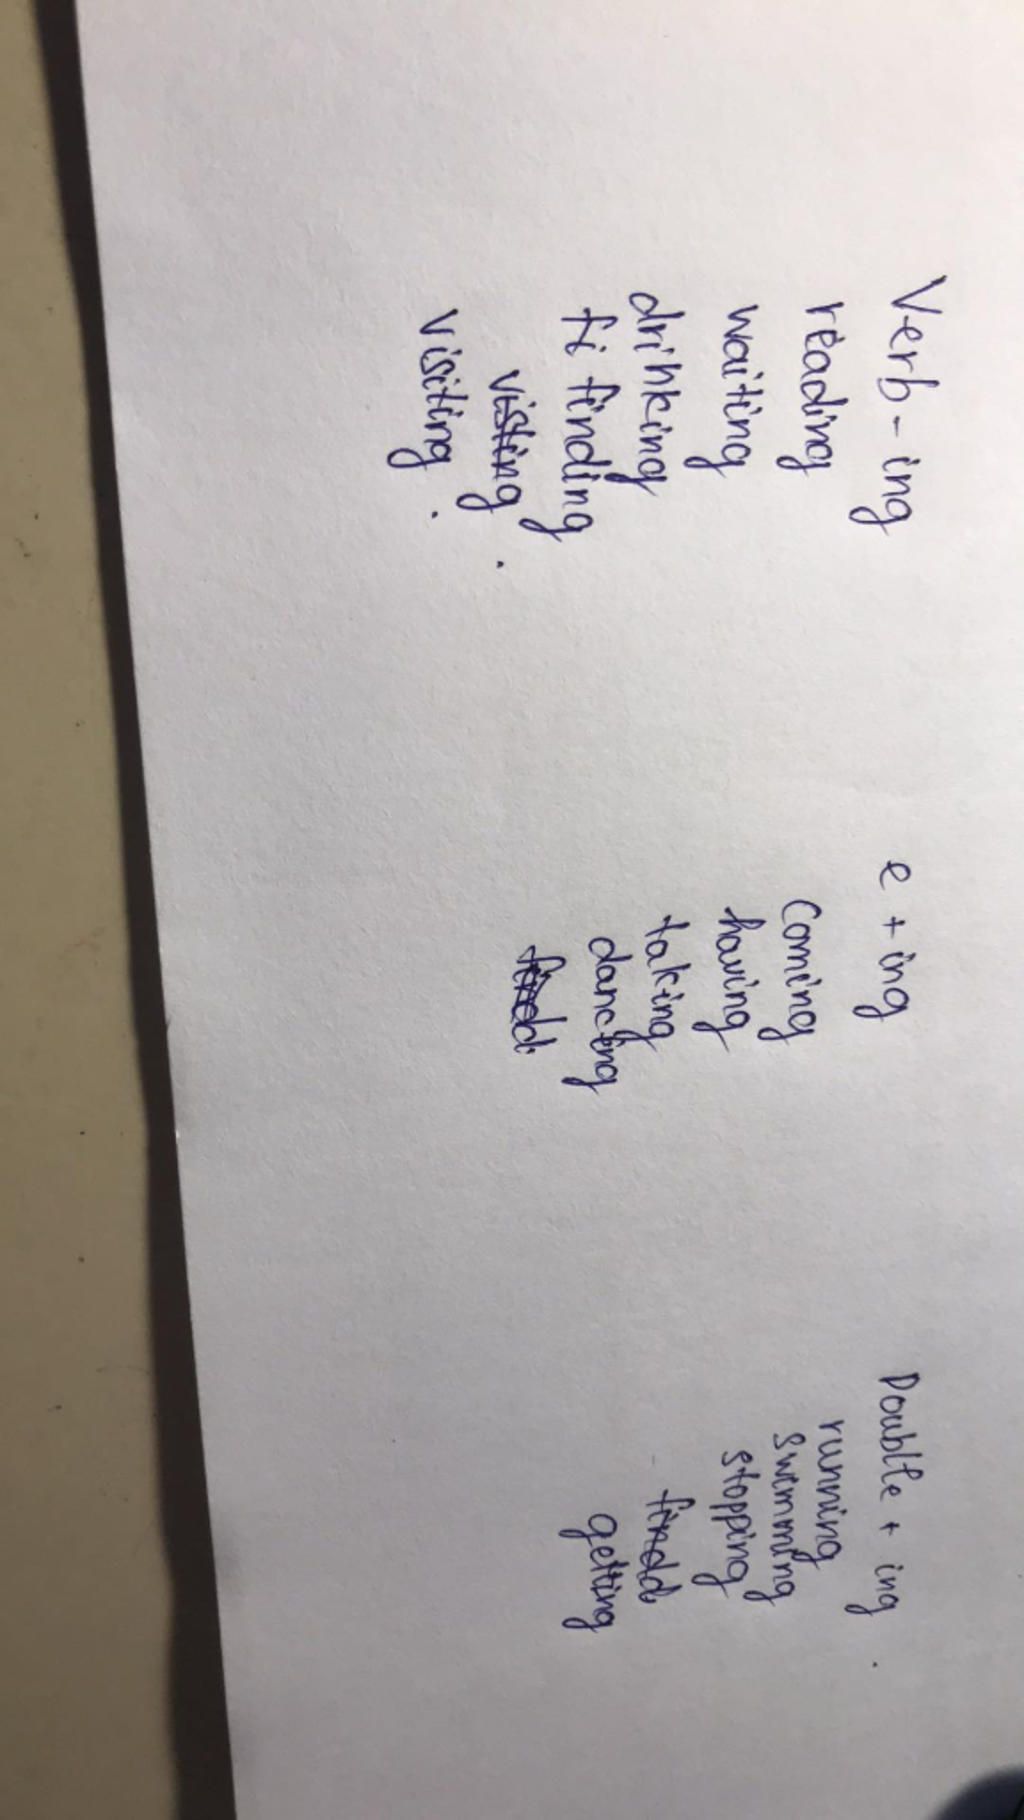 Verb-ing
reading
waiting
drinking
fi finding
visting.
visiting.
e + ing
coming
having
taking
dancing
findd
Doublte + ing.
running
swimming
stopping
findd
getting